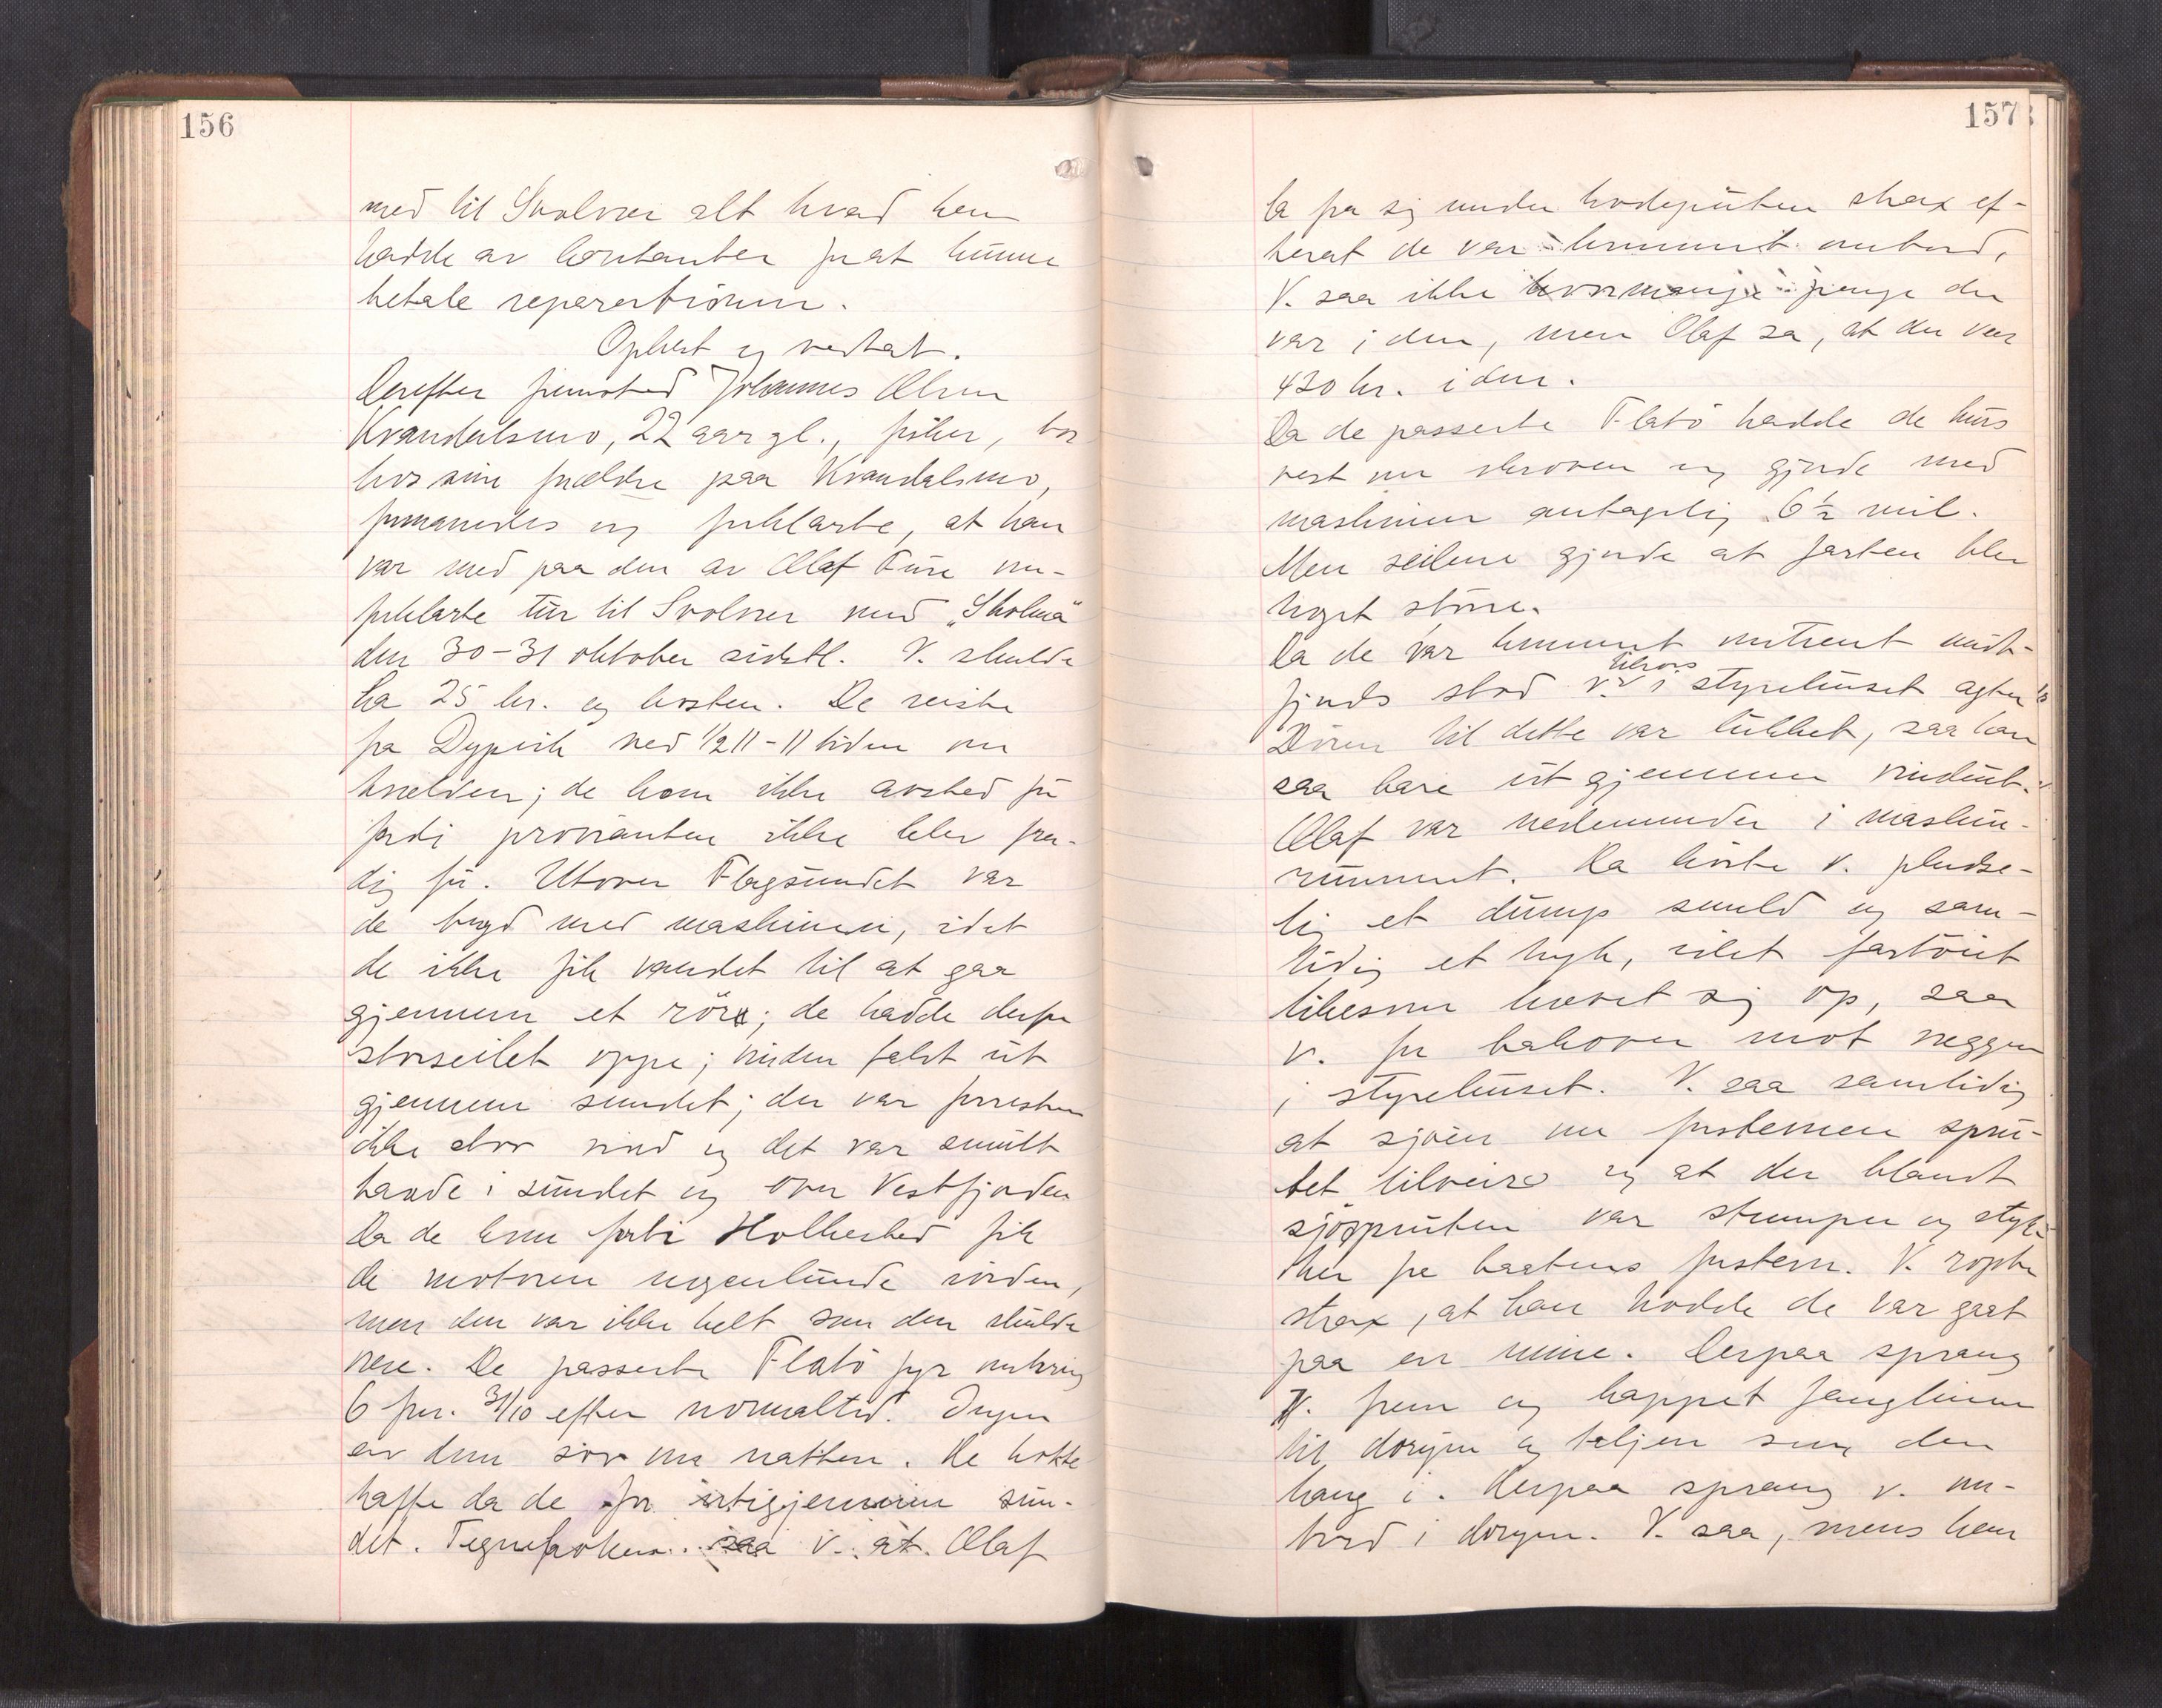 156
med til Svolvær alt hvad han
hadde av kontanter for at kunne
betale reparationen.
Oplest og vedtat.
Derefter fremstod Johannes Olsen
Kvandalsmo, 22 aar gl., fisker, bor
hos sine forældre paa Kvandalsmo,
formanedes og forklarte, at han
var med paa den av Olaf Fure om-
forklarte tur til Svolvær med „Skolma"
den 30-31 oktober sidstl. V. skulde
ha 25 kr. og kosten. De reiste
fra Dypvik ved 1/2 11 - 11 tiden om
kvelden; de kom ikke avsted før
fordi provianten ikke blev fær-
dig før. Utover Flagsundet var
de bryd med maskinen, idet
de ikke fik vandet til at gaa
gjennem et rör; de hadde derfor
storseilet oppe; vinden faldt ut
gjennem sundet; der var forresten
ikke stor vind og det var smult
baade i sundet og over Vestfjorden
Da de kom forbi Holkestad fik
de motoren nogenlunde iorden,
men den var ikke helt som den skulde
være. De passerte Flatö fyr omkring
6 fm. 31/10 efter normaltid. Ingen
av dem sov om natten. De kokte
kaffe da de for utigjennem sun-
det. Tegneboken saa v. at Olaf
157
la fra sig under hodeputen strax ef-
terat de var kommet ombord,
V. saa ikke hvormange penge der
var i den, men Olaf sa, at der var
430 kr. i den.
Da de passerte Flatö hadde de kurs
vest om skroven og gjorde med
maskinen antagelig 6 1/2 mil.
Men seilene gjorde at farten blev
noget större.
Da de var kommet omtrent midt-
fjords stod v. tilrors i styrehuset agter
Dören til dette var lukket, saa han
saa bare ut gjennem vinduet.
Olaf var nedenunder i maskin-
rummet. Da hörte v. pludse-
lig et dump smeld og sam-
tidig et rykk, idet fartöiet
likesom hævet sig op, saa
v. for bakover mot væggen
i styrehuset. V. saa samtidig
at sjöen om forstevnen sprü-
tet tilveirs og at der blandt
sjösprüten var stumper og styk-
ker fra baatens forstevn. V. ropte
strax, at han trodde de var gaat
paa en mine. Derpaa sprang
V. frem og kappet fanglinen
til doryen og taljen som den
hang i. Derpaa sprang v. om-
bord i doryen. V. saa, mens han